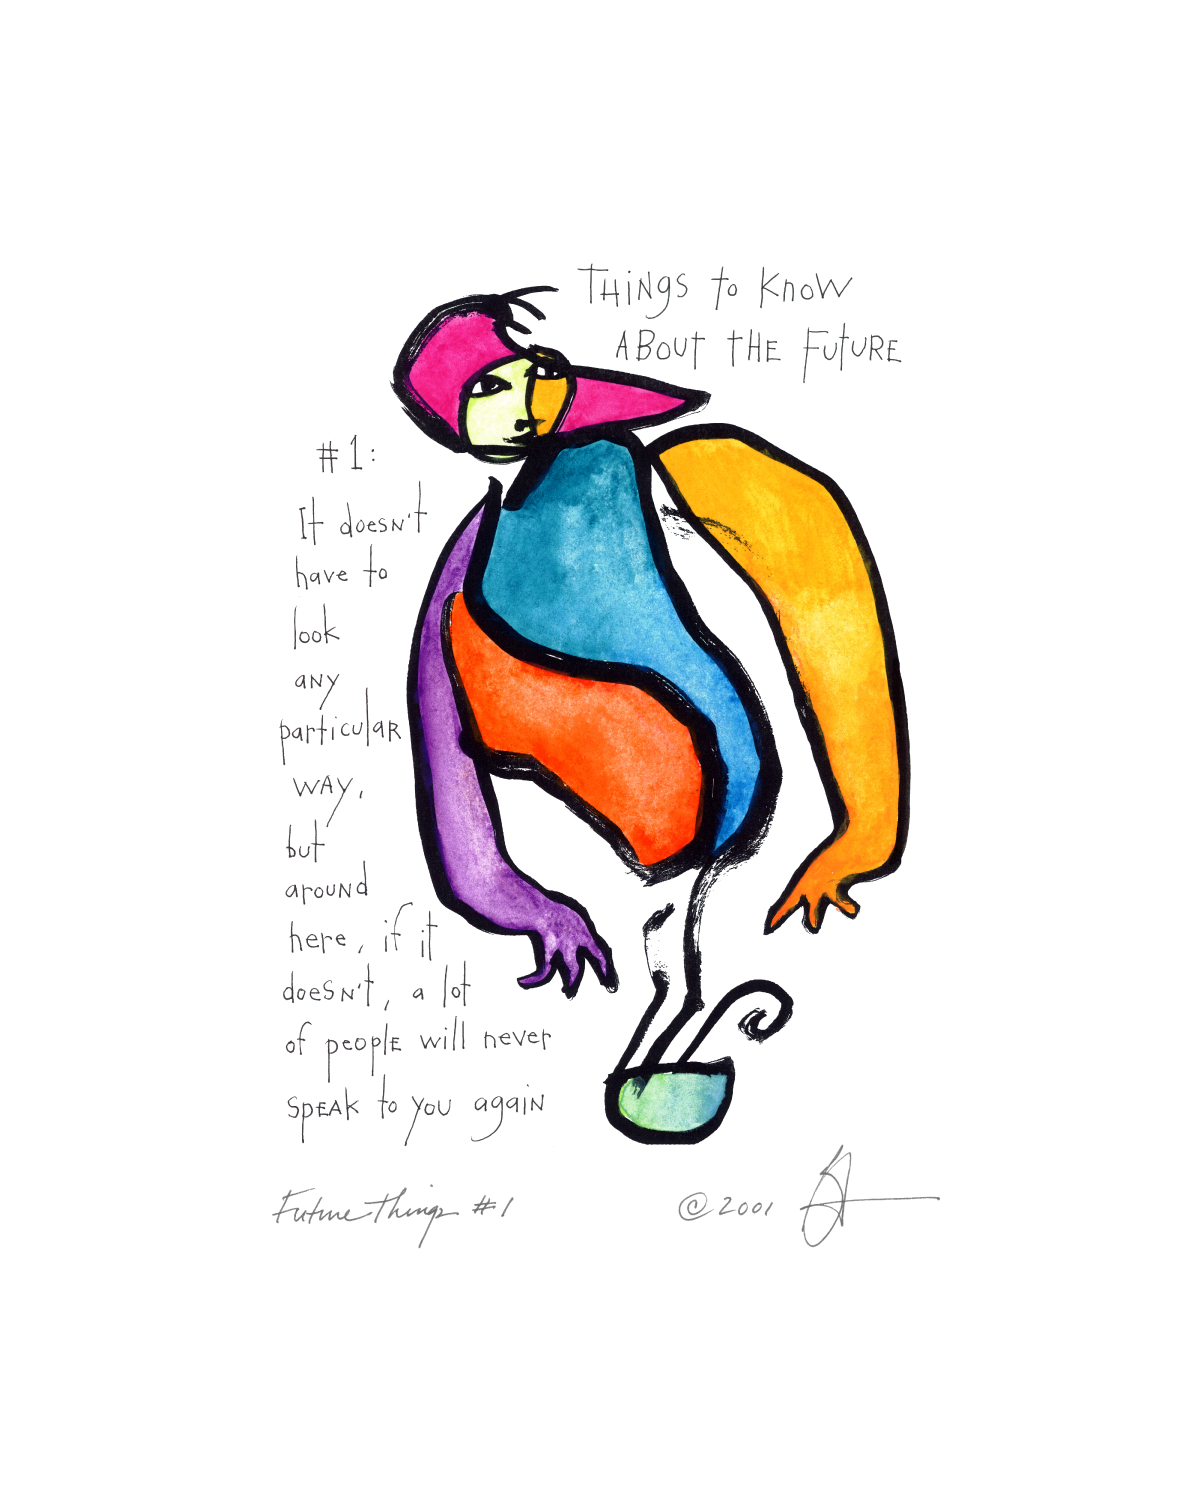 THiNgS to KnoW
ABOUT THE FutuRE
#1:
It doesn't
have to
look
any
particulaR
WAY,
but
arouND
here, if it
doeSN't, a lot
of peoplE will never
SpEAk to you agaiN
Future Things #1
© 2001